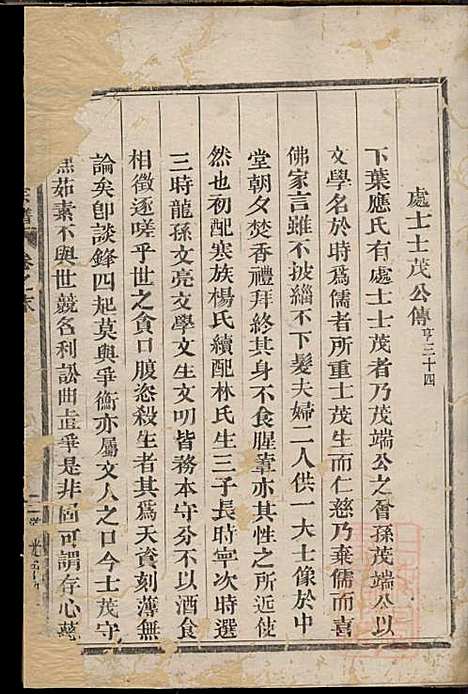 處士士茂公傳 亨三十四
下葉應氏有處士士茂者乃茂端公之曾孫茂端公以
文學名於時爲儒者所重士茂生而仁慈乃棄儒而喜
佛家言雖不披緇不下髮夫婦二人供一大士像於中
堂朝夕焚香禮拜終其身不食腥葷亦其性之所近使
然也初配寒族楊氏續配林氏生三子長時寧次時選
三時龍孫文亮文學文生文明皆務本守分不以酒食
相徵逐嗟乎世之貪口腹恣殺生者其爲天資刻薄無
論矣卽談鋒四起莫與爭衡亦屬文人之口今士茂守
茹素不與世競名利訟曲直爭是非固可謂存心慈
宗譜 卷之末